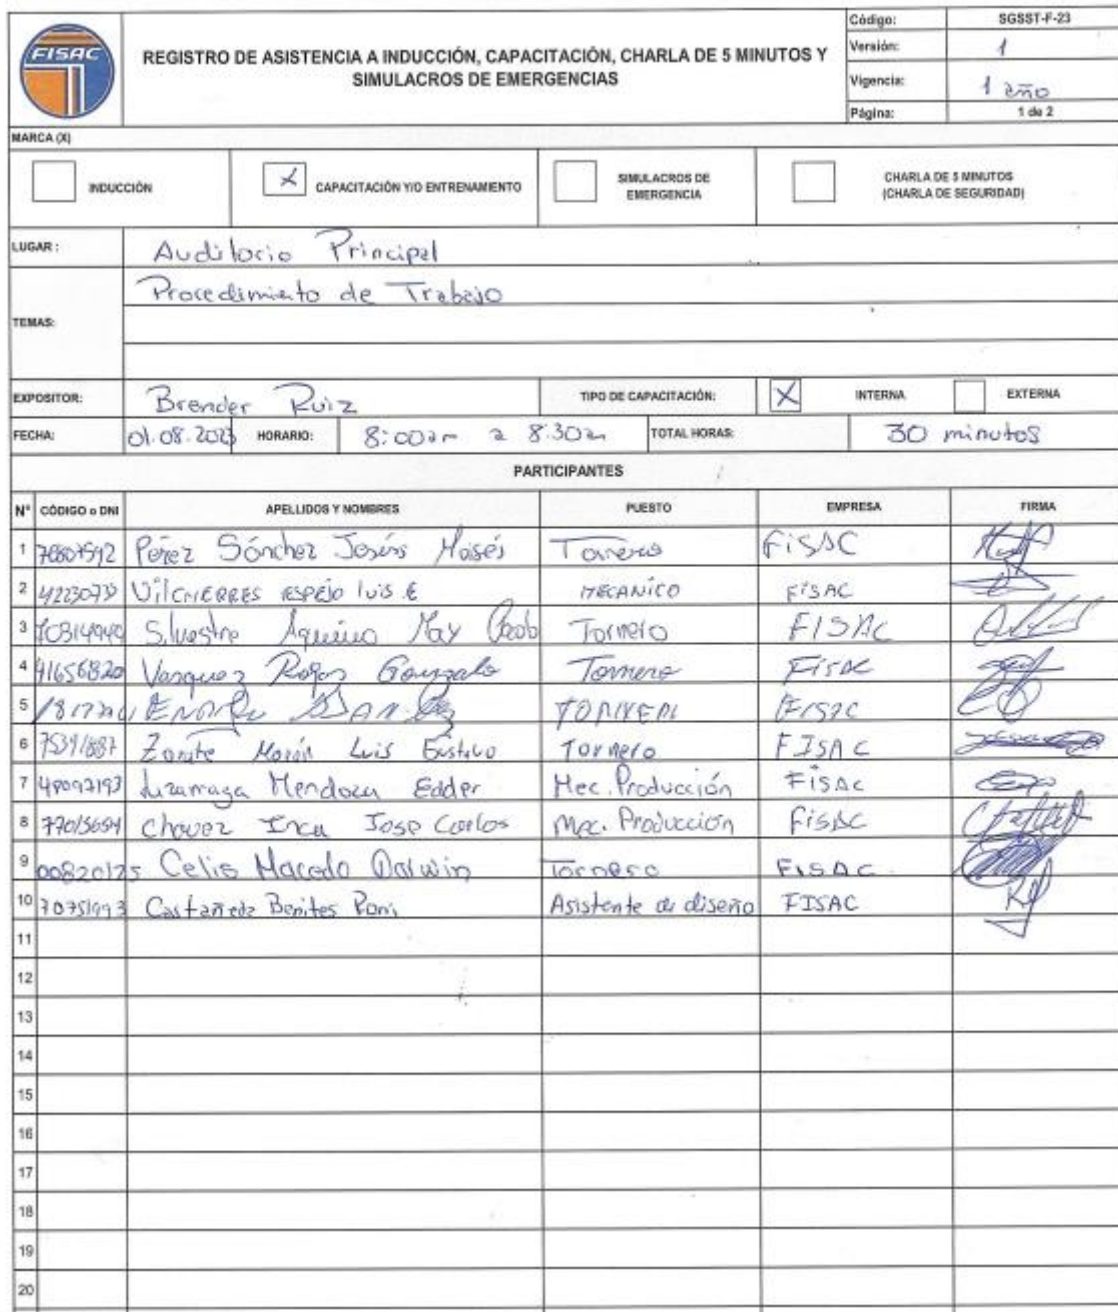 FISAC
REGISTRO DE ASISTENCIA A INDUCCIÓN, CAPACITACIÓN, CHARLA DE 5 MINUTOS Y
SIMULACROS DE EMERGENCIAS
Código: SGSST-F-23
Versión: 1
Vigencia: 1 año
Página: 1 de 2
MARCA (X)
INDUCCIÓN
X CAPACITACIÓN Y/O ENTRENAMIENTO
SIMULACROS DE
EMERGENCIA
CHARLA DE 5 MINUTOS
(CHARLA DE SEGURIDAD)
LUGAR : Auditorio Principal
TEMAS: Procedimiento de Trabajo
EXPOSITOR: Brender Ruiz TIPO DE CAPACITACIÓN: X INTERNA EXTERNA
FECHA: 01.08.2023 HORARIO: 8:00am a 8:30am TOTAL HORAS: 30 minutos
PARTICIPANTES
N° CÓDIGO o DNI APELLIDOS Y NOMBRES PUESTO EMPRESA FIRMA
1 Pérez Sánchez Jesús Moisés Tornero FISAC
2 VILCHERRES ESPEJO luis E MECANICO FISAC
3 Silvestre Aquino Max Tornero FISAC
4 41656820 Vasquez Rojas Gonzalo Tornero FISAC
5 FISAC
6 75391887 Zarate Morón Luis Gustavo Tornero FISAC
7 Mendoza Edder Mec. Producción FISAC
8 77015694 Chavez Inca Jose Carlos Mec. Producción FISAC
9 00820125 Celis Macedo Darwin Tornero FISAC
10 70751993 Castañeda Benites Asistente de diseño FISAC
11
12
13
14
15
16
17
18
19
20